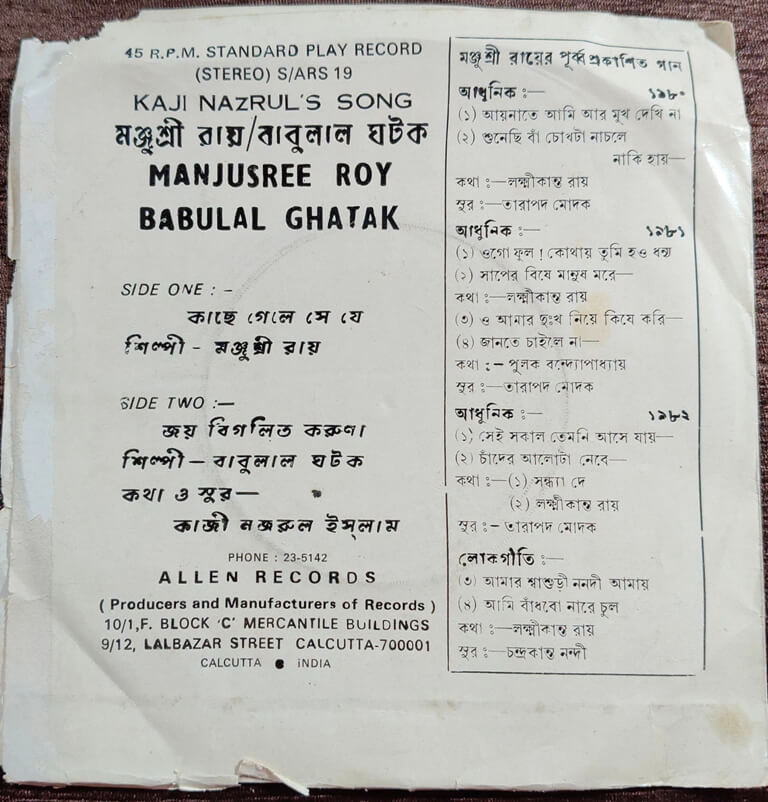 45 R.P.M. STANDARD PLAY RECORD
(STEREO) S/ARS 19
KAJI NAZRUL'S SONG
মঞ্জুশ্রী রায়/বাবুলাল ঘটক
MANJUSREE ROY
BABULAL GHATAK
SIDE ONE : -
কাছে গেলে সে যে
শিল্পী - মঞ্জুশ্রী রায়
SIDE TWO :—
জয় বিগলিত করুণা
শিল্পী — বাবুলাল ঘটক
কথা ও সুর—
কাজী নজরুল ইসলাম
PHONE : 23-5142
ALLEN RECORDS
( Producers and Manufacturers of Records )
10/1,F. BLOCK 'C' MERCANTILE BUILDINGS
9/12, LALBAZAR STREET CALCUTTA-700001
CALCUTTA ● INDIA
মঞ্জুশ্রী রায়ের পূর্ব্ব প্রকাশিত গান
আধুনিক :— ১৯৮০
(১) আয়নাতে আমি আর মুখ দেখি না
(২) শুনেছি বাঁ চোখটা নাচলে
নাকি হায়—
কথা :—লক্ষ্মীকান্ত রায়
সুর :—তারাপদ মোদক
আধুনিক :— ১৯৮১
(১) ওগো ফুল ! কোথায় তুমি হও ধন্য
(২) সাপের বিষে মানুষ মরে—
কথা :—লক্ষ্মীকান্ত রায়
(৩) ও আমার দুঃখ নিয়ে কিযে করি—
(৪) জানতে চাইলে না—
কথা :- পুলক বন্দ্যোপাধ্যায়
সুর :—তারাপদ মোদক
আধুনিক :— ১৯৮২
(১) সেই সকাল তেমনি আসে যায়—
(২) চাঁদের আলোটা নেবে—
কথা :—(১) সন্ধ্যা দে
(২) লক্ষ্মীকান্ত রায়
সুর :- তারাপদ মোদক
লোকগীতি :—
(৩) আমার শ্বাশুড়ী ননদী আমায়
(৪) আমি বাঁধবো নারে চুল
কথা :—লক্ষ্মীকান্ত রায়
সুর :—চন্দ্রকান্ত নন্দী